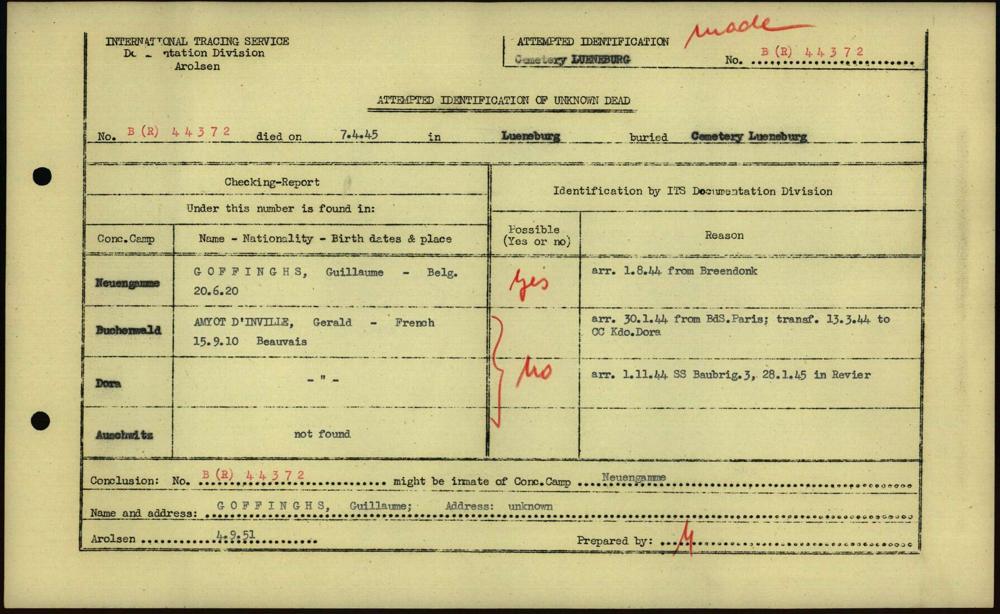 made
INTERNATIONAL TRACING SERVICE
Documentation Division
Arolsen
ATTEMPTED IDENTIFICATION
Cemetery LUENEBURG
No. B (R) 44372
ATTEMPTED IDENTIFICATION OF UNKNOWN DEAD
No. B (R) 44372 died on 7.4.45 in Lueneburg buried Cemetery Lueneburg
Checking-Report
Under this number is found in:
Identification by ITS Documentation Division
Conc.Camp
Name - Nationality - Birth dates & place
Possible
(Yes or no)
Reason
Neuengamme
GOFFINGHS, Guillaume - Belg.
20.6.20
yes
arr. 1.8.44 from Breendonk
Buchenwald
AMYOT D'INVILLE, Gerald - French
15.9.10 Beauvais
arr. 30.1.44 from BdS.Paris; transf. 13.3.44 to
CC Kdo.Dora
Dora
- " -
no
arr. 1.11.44 SS Baubrig.3, 28.1.45 in Revier
Auschwitz
not found
Conclusion: No. B (R) 44372 might be inmate of Conc.Camp Neuengamme
Name and address: GOFFINGHS, Guillaume; Address: unknown
Arolsen 4.9.51 Prepared by: